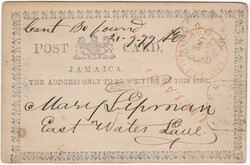 Cant be found
POST CARD.
JAMAICA.
THE ADDRESS ONLY TO BE WRITTEN ON THIS SIDE.
Mary Lipman
East Water Lane